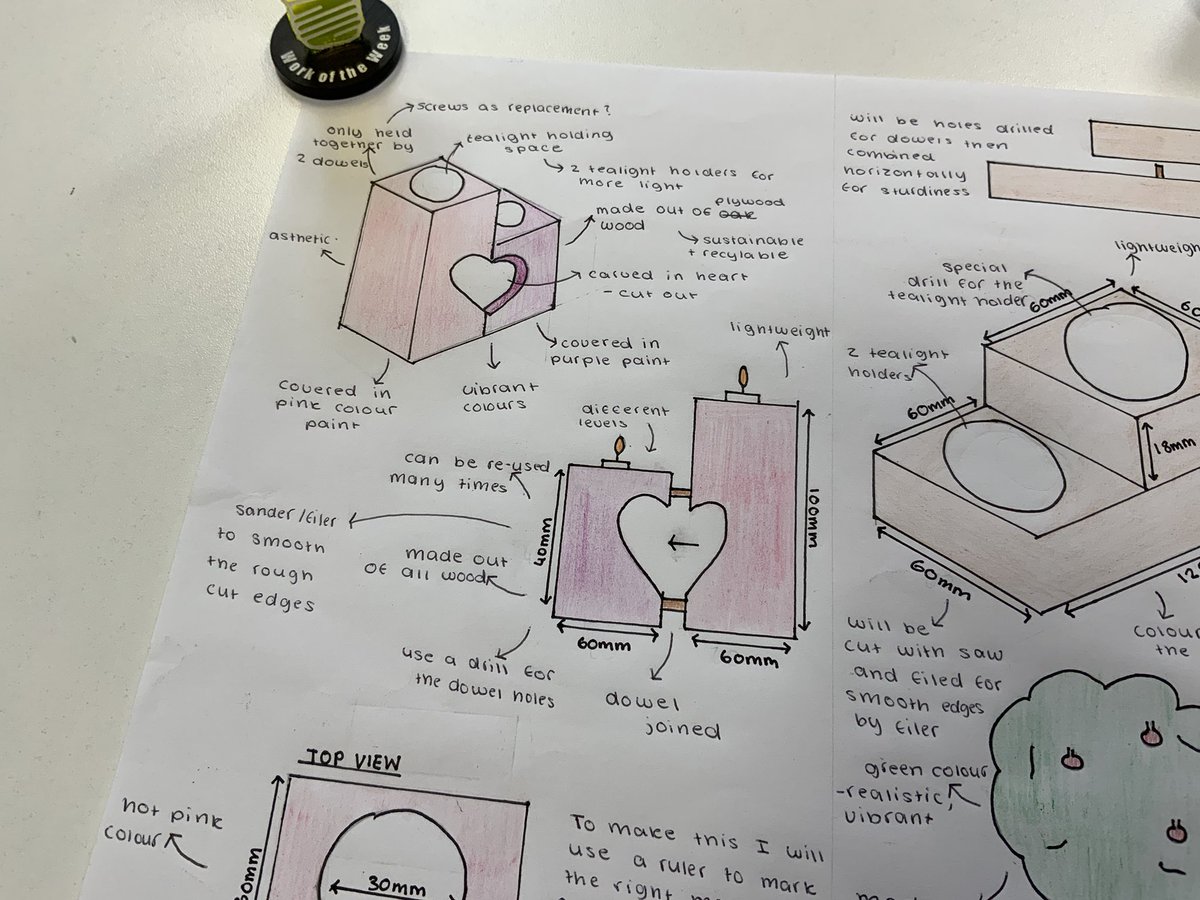 Work of the Week
screws as replacement?
only held
together by
2 dowels
tealight holding
space
2 tealight holders for
more light
made out of plywood
wood
sustainable
+ recylable
asthetic.
carved in heart
- cut out
covered in
purple paint
vibrant
colours
covered in
pink colour
paint
lightweight
different
levels
can be re-used
many times
sander/filer
to smooth
the rough
cut edges
made out
of all wood
40mm
100mm
60mm
60mm
use a drill for
the dowel holes
dowel
joined
TOP VIEW
hot pink
colour
30mm
To make this I will
use a ruler to mark
the right
will be holes drilled
for dowels then
combined
horizontally
for sturdiness
lightweight
special
drill for the
tealight holder
60mm
2 tealight
holders
60mm
18mm
60mm
will be
cut with saw
and filed for
smooth edges
by filer
colour
the
green colour
-realistic,
vibrant